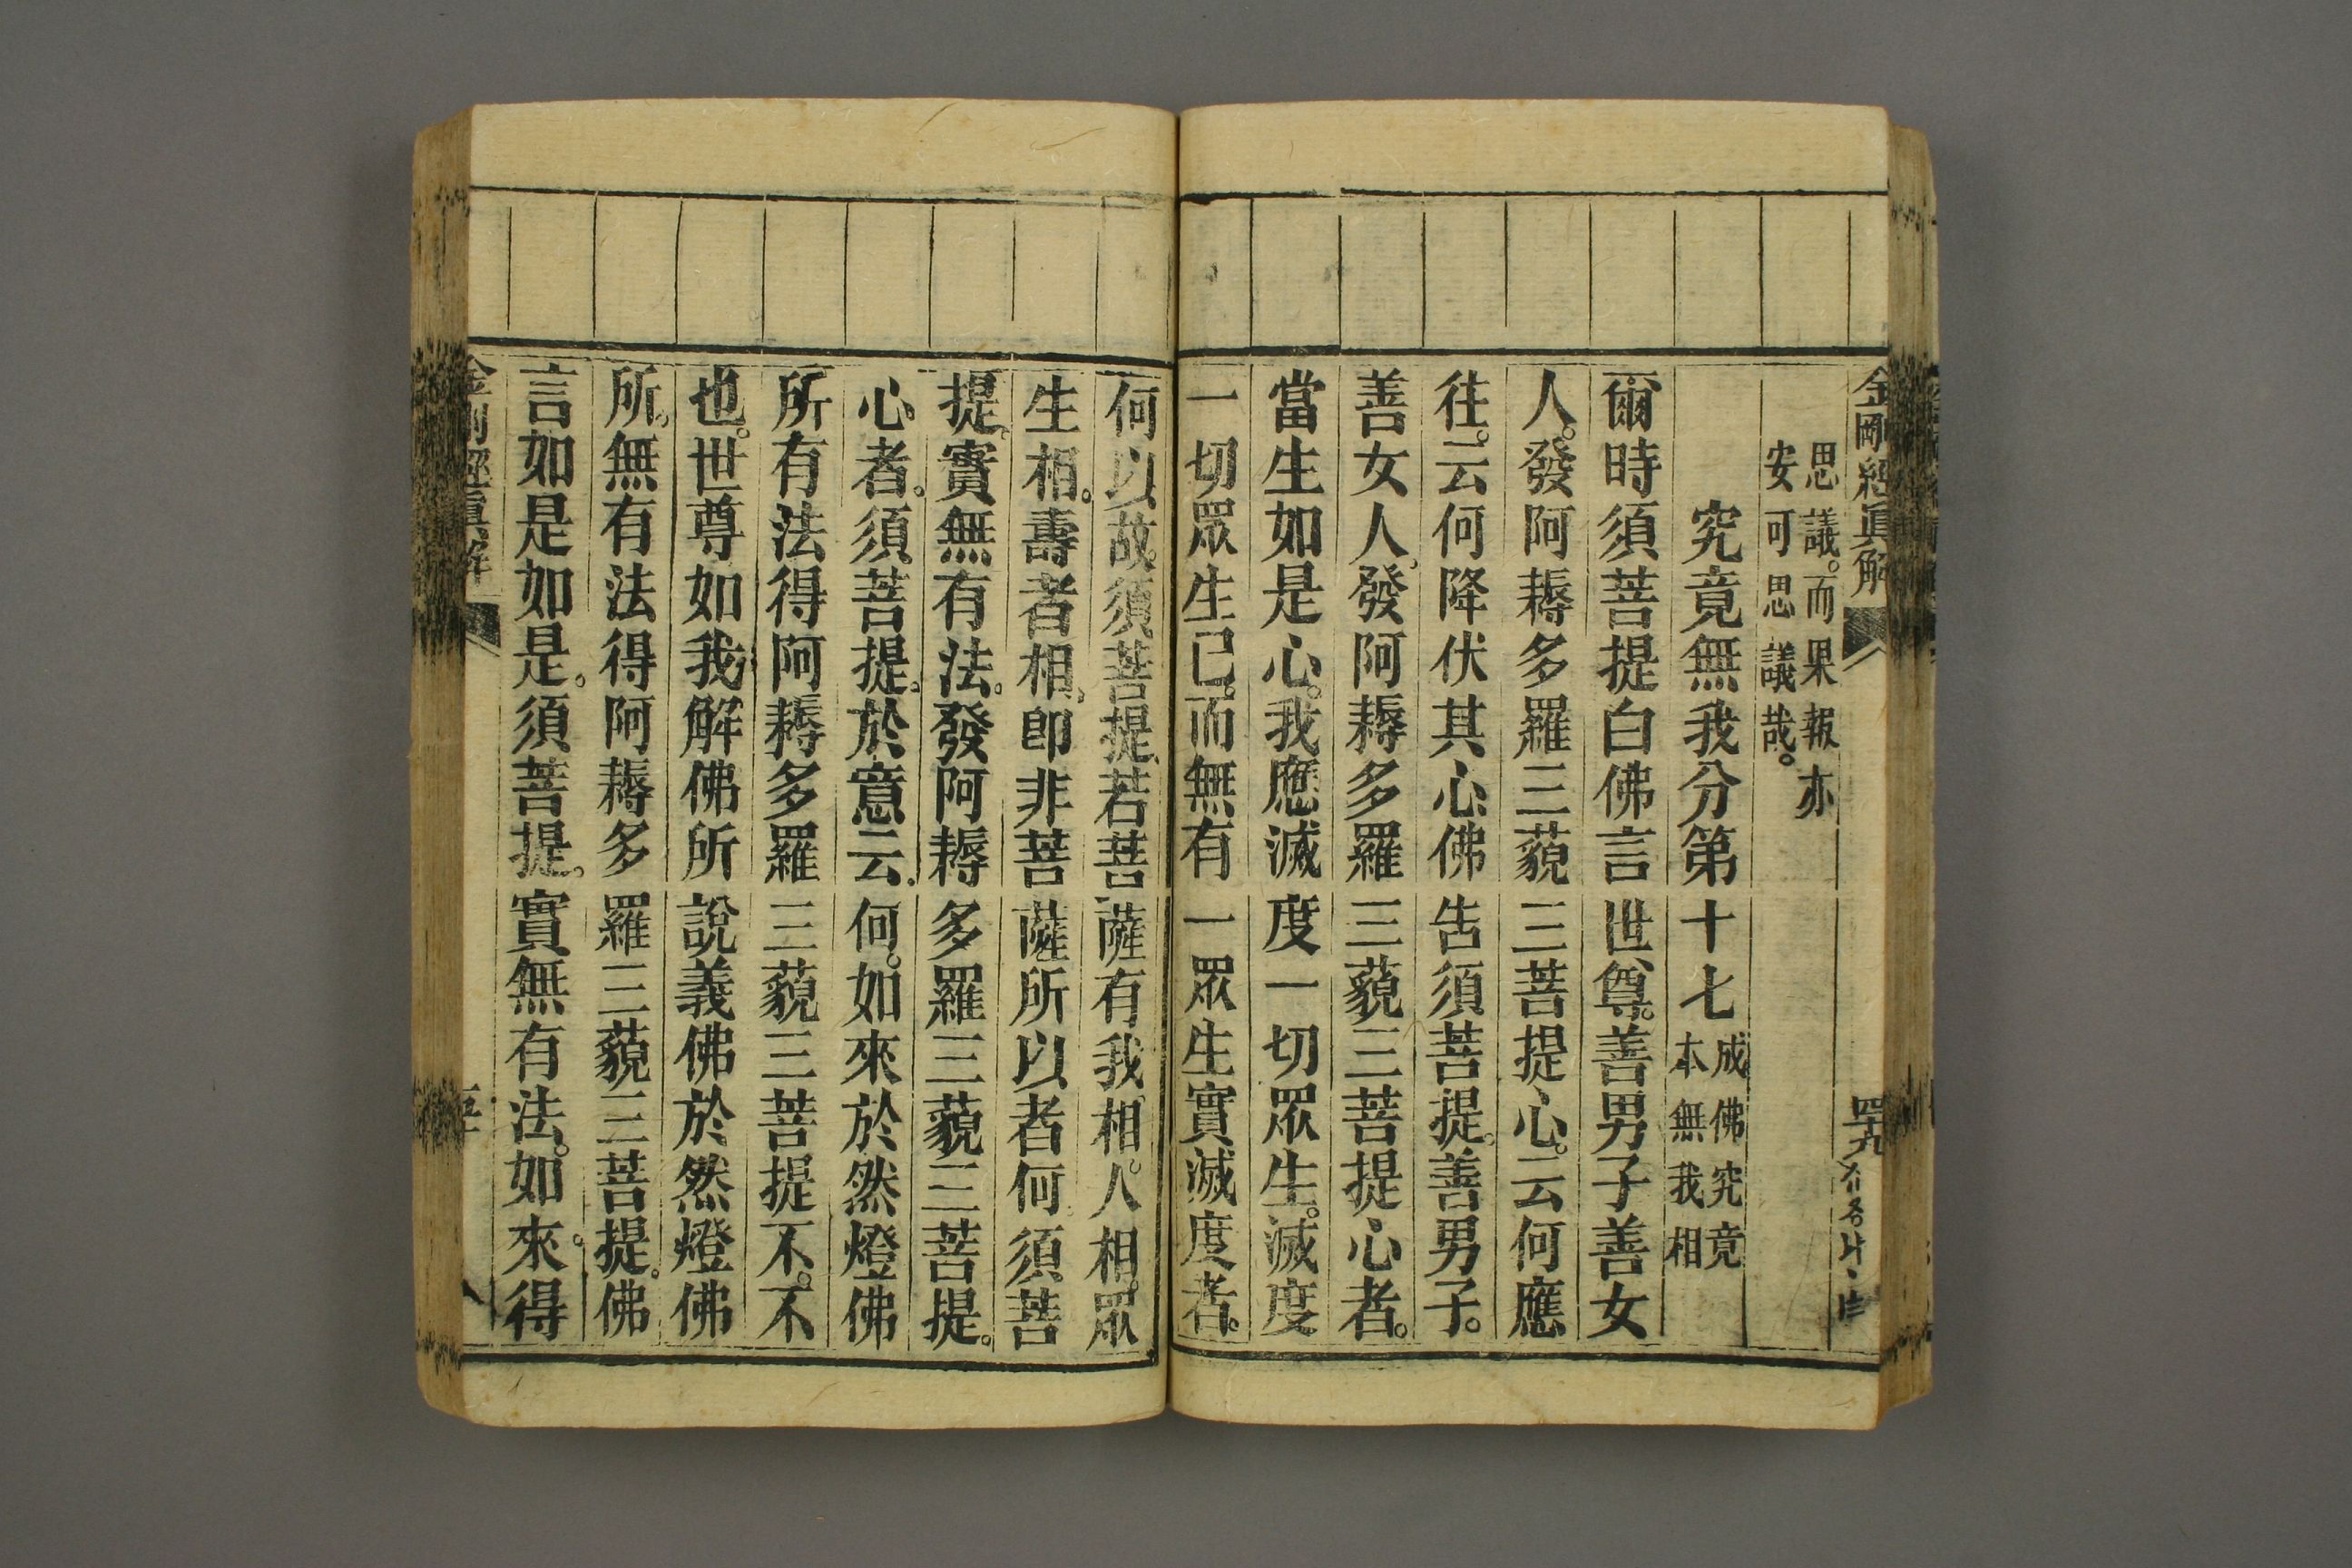 金剛經眞解
四十九
思議。而果報亦
安可思議哉。
究竟無我分第十七
成佛究竟
本無我相
爾時須菩提白佛言世尊。善男子善女
人。發阿耨多羅三藐三菩提心。云何應
往。云何降伏其心佛告須菩提。善男子。
善女人。發阿耨多羅三藐三菩提心者。
當生如是心。我應滅度一切眾生。滅度
一切眾生已。而無有一眾生實滅度者。
何以故。須菩提。若菩薩有我相。人相。眾
生相。壽者相。即非菩薩所以者何。須菩
提。實無有法。發阿耨多羅三藐三菩提。
心者。須菩提。於意云何。如來於然燈佛
所有法得阿耨多羅三藐三菩提不。不
也。世尊如我解佛所說義佛於然燈佛
所。無有法得阿耨多羅三藐三菩提。佛
言如是如是。須菩提。實無有法。如來。得
金剛經眞解